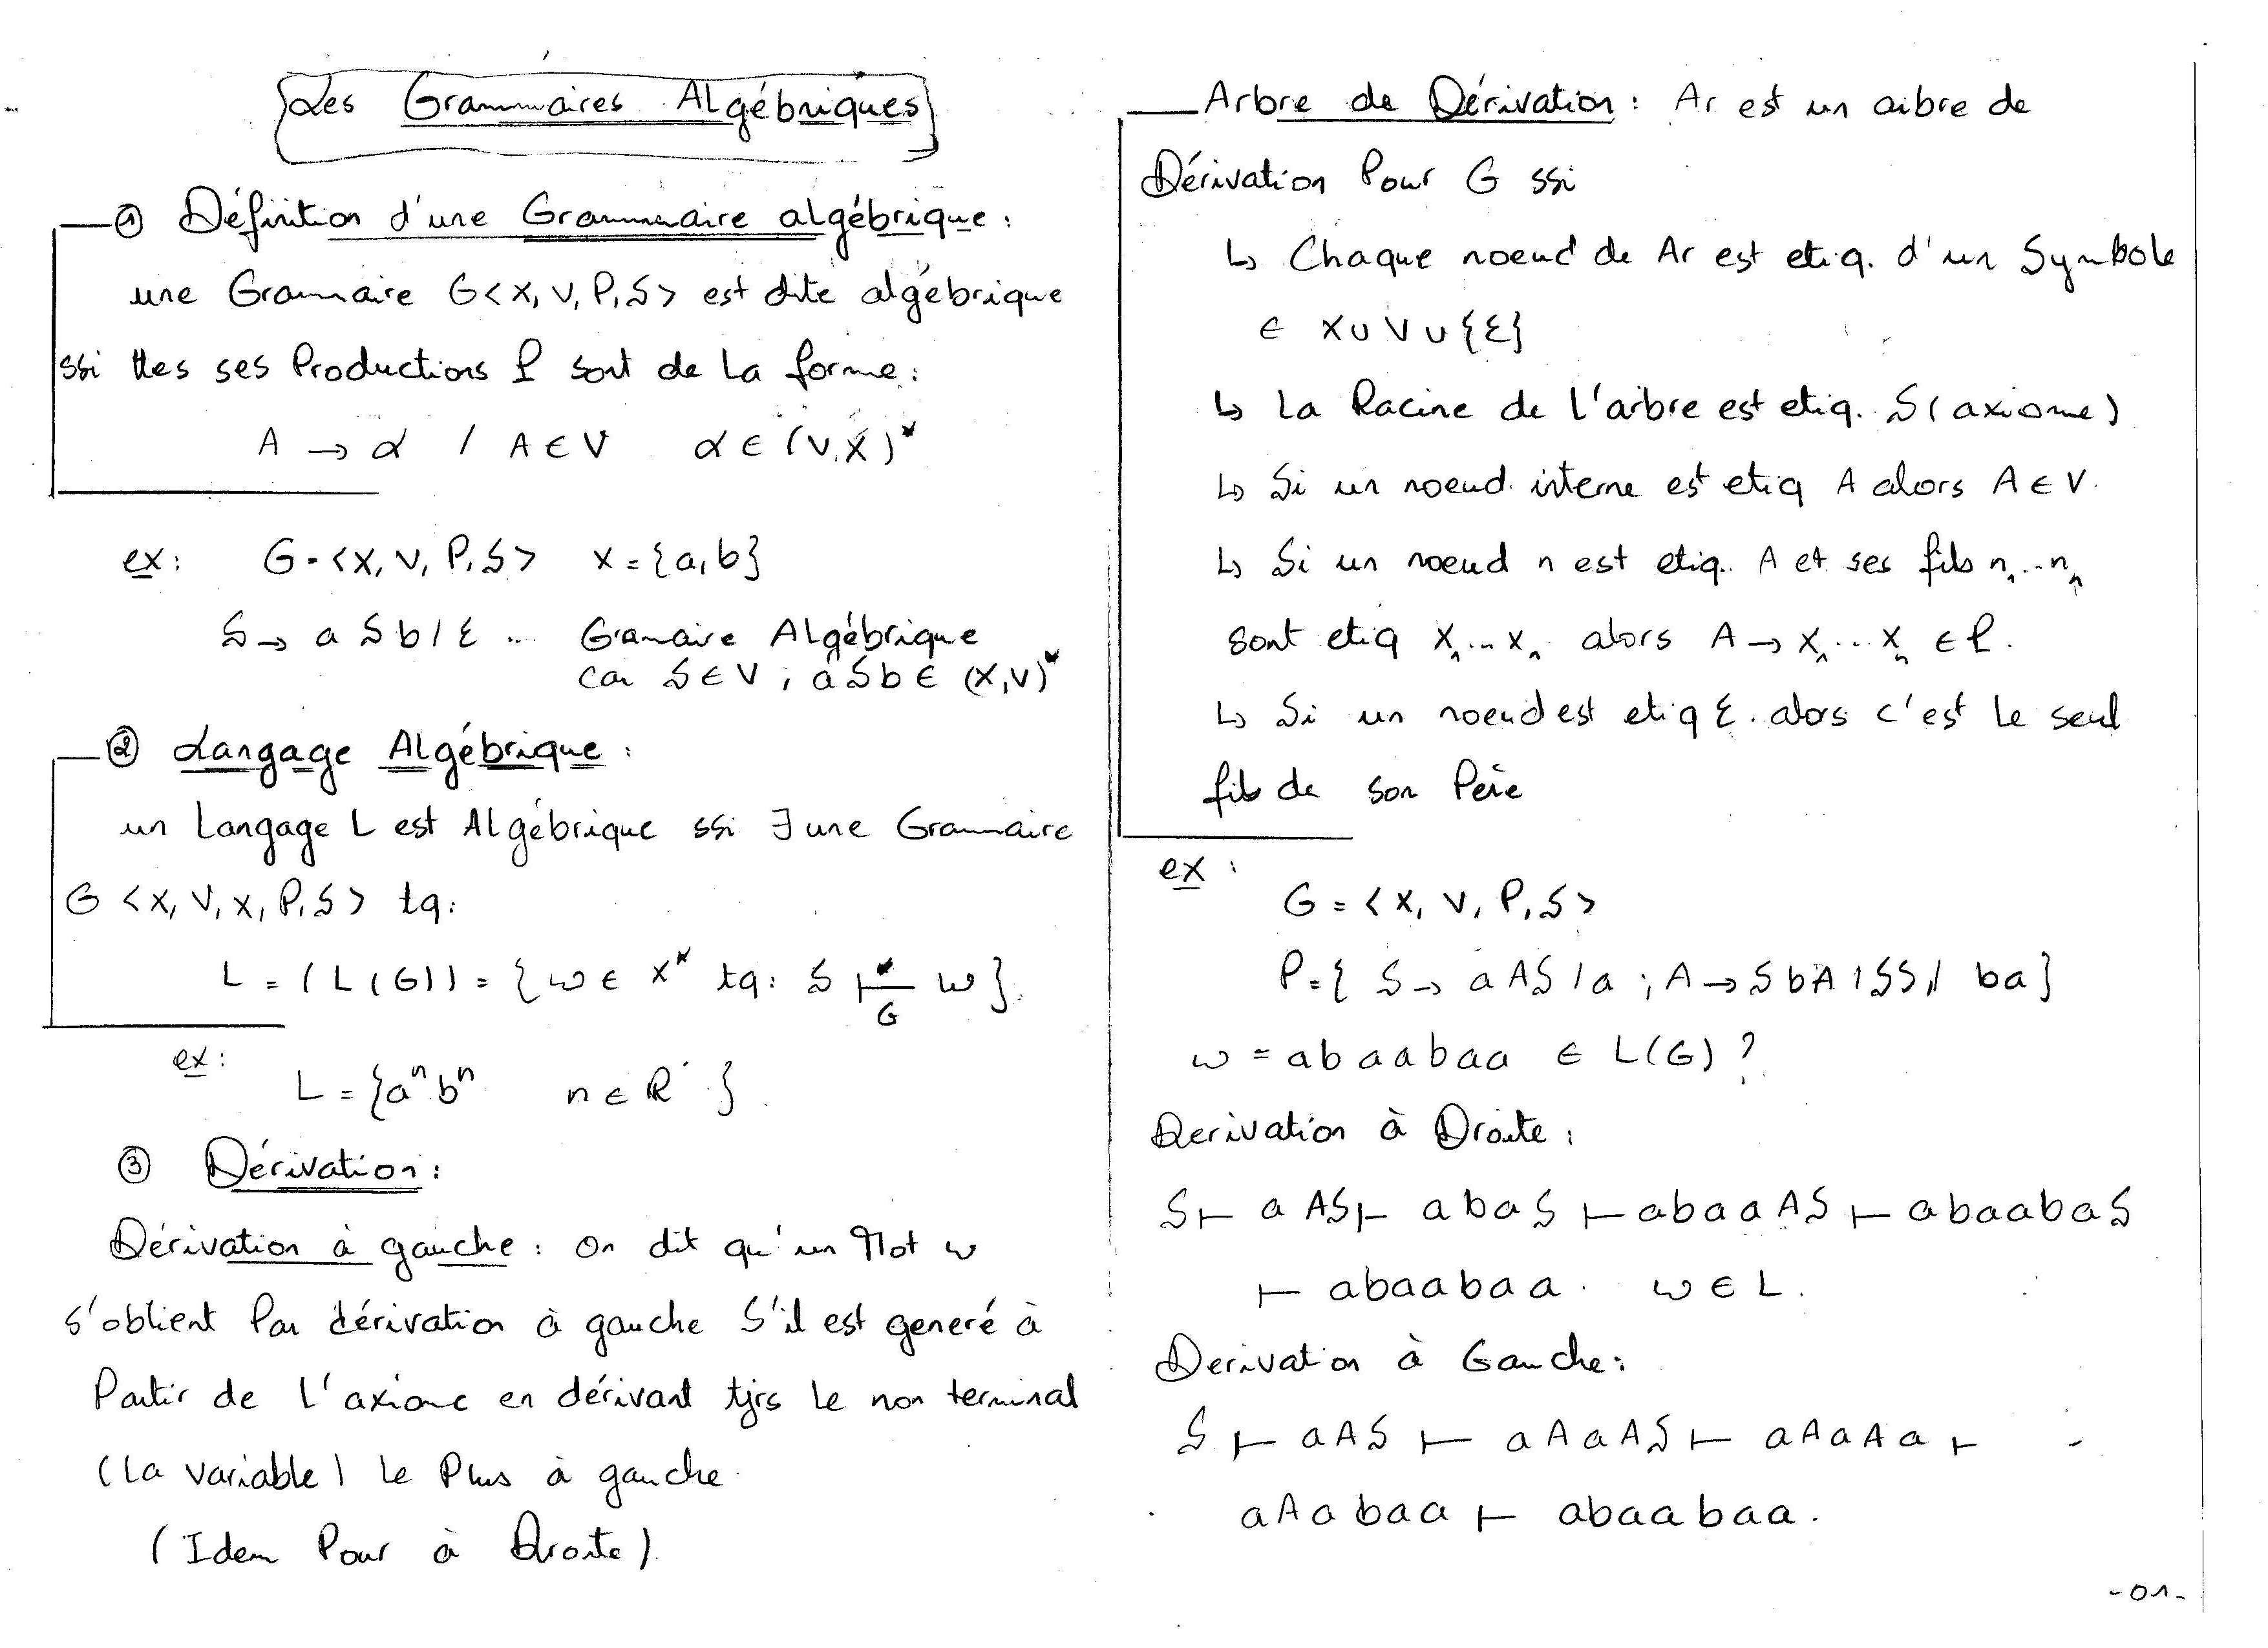 Les Grammaires Algébriques
① Définition d'une Grammaire algébrique :
une Grammaire G<X, V, P, S> est dite algébrique
ssi ttes ses Productions P sont de la forme :
A → α / A ∈ V α ∈ (V, X)*
ex : G = <X, V, P, S> X = {a, b}
S → a S b / ε ... Gramaire Algébrique
car S ∈ V ; a S b ∈ (X, V)*
② Langage Algébrique :
un Langage L est Algébrique ssi ∃ une Grammaire
G <X, V, X, P, S> tq :
L = (L(G)) = {ω ∈ X* tq : S ⊢* ω}
G
ex :
L = {aⁿ bⁿ n ∈ ℝ }
③ Dérivation :
Dérivation à gauche : on dit qu'un Mot ω
s'obtient Par dérivation à gauche S'il est generé à
Partir de L'axiome en dérivant tjrs le non terminal
(la variable) le Plus à gauche.
(Idem Pour à Droite)
Arbre de Dérivation : Ar est un arbre de
Dérivation Pour G ssi
↳ Chaque noeud de Ar est etiq. d'un Symbole
∈ X ∪ V ∪ {ε}
↳ La Racine de L'arbre est etiq. S (axiome)
↳ Si un noeud interne est etiq A alors A ∈ V.
↳ Si un noeud n est etiq. A et ses fils n₁...nₙ
sont etiq X₁...Xₙ alors A → X₁...Xₙ ∈ P.
↳ Si un noeud est etiq ε. alors c'est le seul
fils de son Père
ex :
G = <X, V, P, S>
P = { S → a A S / a ; A → S b A / S S / ba }
ω = abaabaa ∈ L(G) ?
Derivation à Droite :
S ⊢ a A S ⊢ abaS ⊢ abaaAS ⊢ abaabaS
⊢ abaabaa. ω ∈ L.
Derivation à Gauche :
S ⊢ aAS ⊢ aAaAS ⊢ aAaAa ⊢
aAabaa ⊢ abaabaa.
-01-